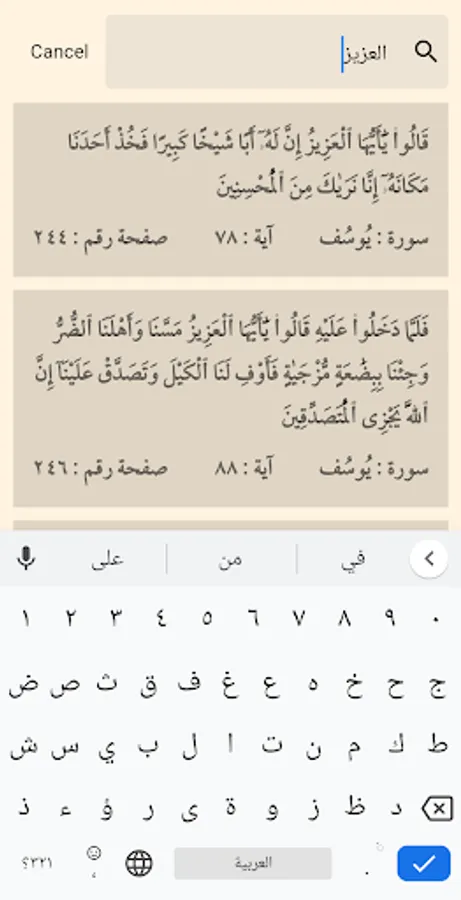 العزيز Cancel
قَالُوا۟ يَٰٓأَيُّهَا ٱلْعَزِيزُ إِنَّ لَهُۥٓ أَبًا شَيْخًا كَبِيرًا فَخُذْ أَحَدَنَا
مَكَانَهُۥٓ إِنَّا نَرَىٰكَ مِنَ ٱلْمُحْسِنِينَ
سورة : يُوسُف آية : ٧٨ صفحة رقم : ٢٤٤
فَلَمَّا دَخَلُوا۟ عَلَيْهِ قَالُوا۟ يَٰٓأَيُّهَا ٱلْعَزِيزُ مَسَّنَا وَأَهْلَنَا ٱلضُّرُّ
وَجِئْنَا بِبِضَٰعَةٍ مُّزْجَىٰةٍ فَأَوْفِ لَنَا ٱلْكَيْلَ وَتَصَدَّقْ عَلَيْنَآ إِنَّ
ٱللَّهَ يَجْزِى ٱلْمُتَصَدِّقِينَ
سورة : يُوسُف آية : ٨٨ صفحة رقم : ٢٤٦
في من على
١ ٢ ٣ ٤ ٥ ٦ ٧ ٨ ٩ ٠
ج ح خ ه ع غ ف ق ث ص ض
ط ك م ن ت ا ل ب ي س ش
د ظ ز و ة ى ر ؤ ء ذ
؟٣٢١ ، العربية .